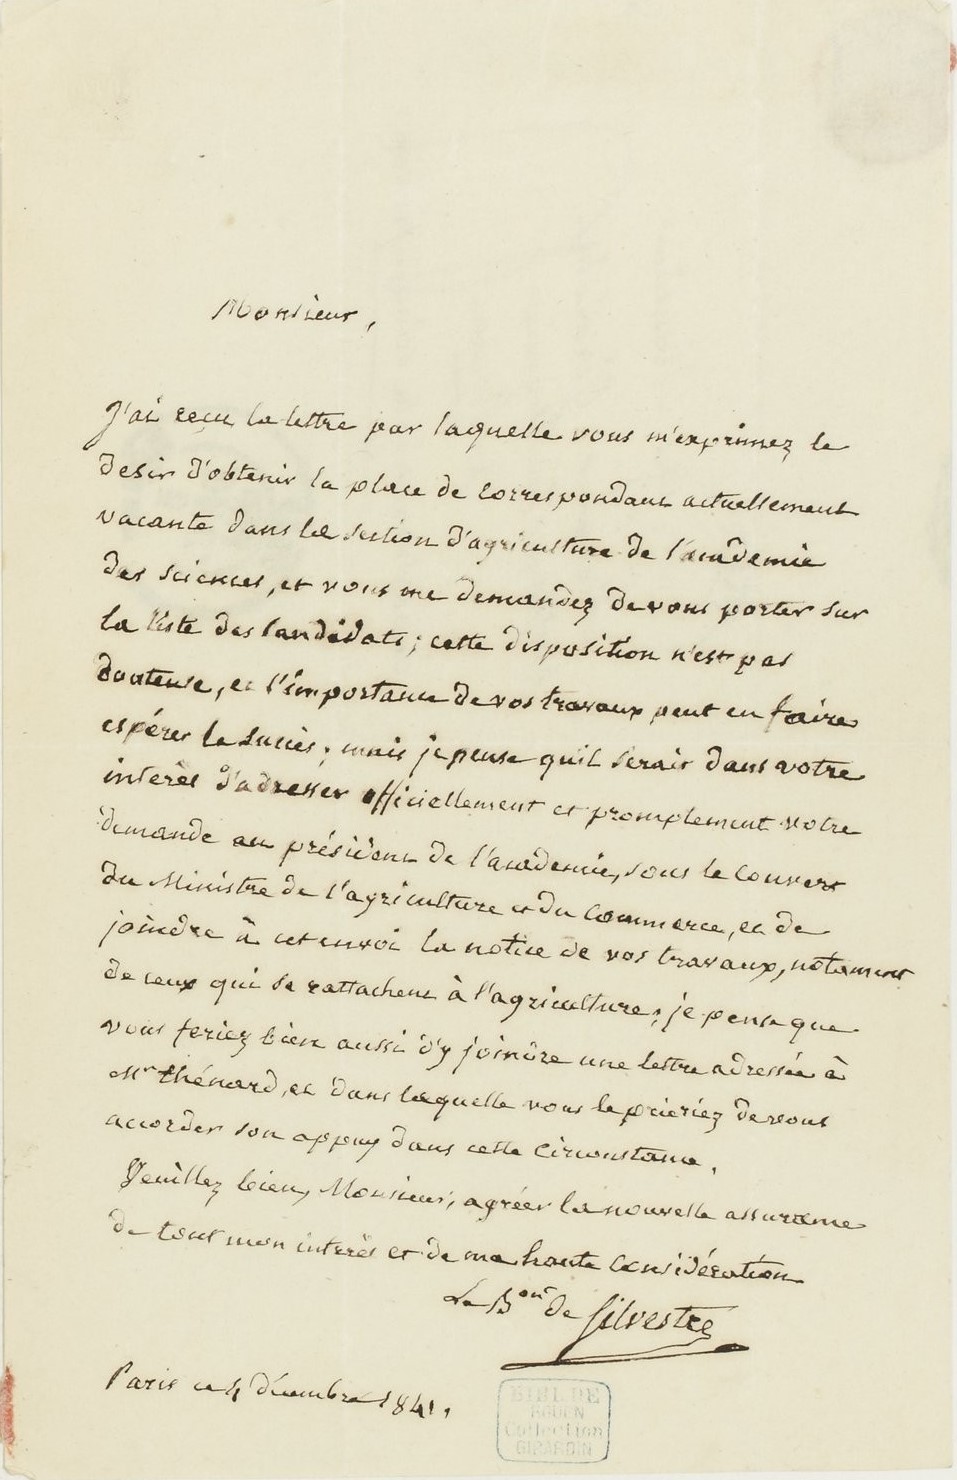 Monsieur,
J'ai reçu la lettre par laquelle vous m'exprimez le
desir d'obtenir la place de correspondant actuellement
vacante dans la section d'agriculture de l'académie
des sciences, et vous me demandez de vous porter sur
la liste des candidats; cette disposition n'est pas
douteuse, et l'importance de vos travaux peut en faire
espérer le succès; mais je pense qu'il serait dans votre
intérêt d'adresser officiellement et promptement votre
demande au président de l'académie, sous le couvert
du Ministre de l'agriculture et du Commerce, et de
joindre à cet envoi la notice de vos travaux, notament
de ceux qui se rattachent à l'agriculture; je pense que
vous feriez bien aussi d'y joindre une lettre adressée à
Mr thénard, et dans laquelle vous le prieriez de vous
accorder son appuy dans cette circonstance.
Veuillez bien, Monsieur, agréer la nouvelle assurance
de tout mon intérêt et de ma haute considération
Le Bon de Silvestre
Paris ce 4 décembre 1841.
BIBL. DE
ROUEN
Collection
GIRARDIN